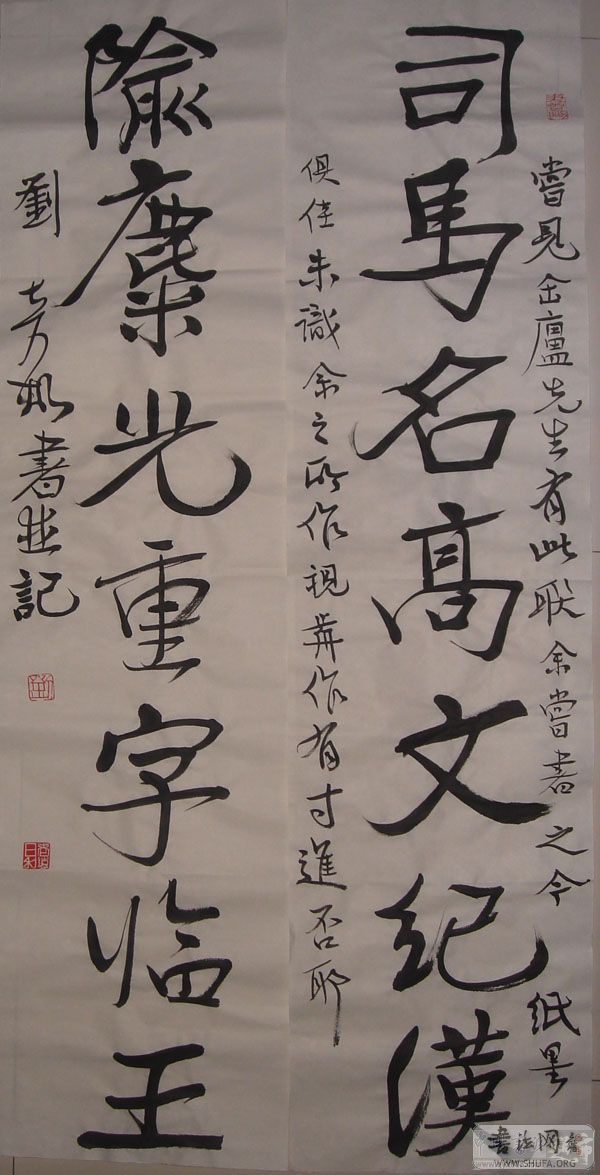 嘗見缶廬先生有此联余嘗書之今 纸墨
司馬名高文纪漢
俱佳未識余之所作視前作有寸進否耶
隃麋光重字临王
劉 書並記
書法网
WWW.SHUFA.ORG